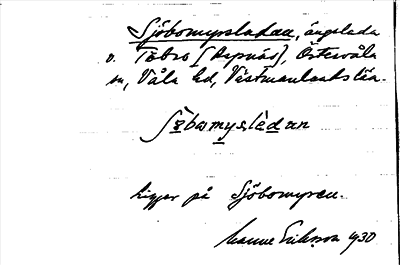 Sjöbomyrsladan, ängslada
v. Täbro (Aspnäs), Östervåla
sn, Våla hd, Västmanlands län.
Sjöbomyslèdan
Ligger på Sjöbomyren.
Manne Eriksson 1930